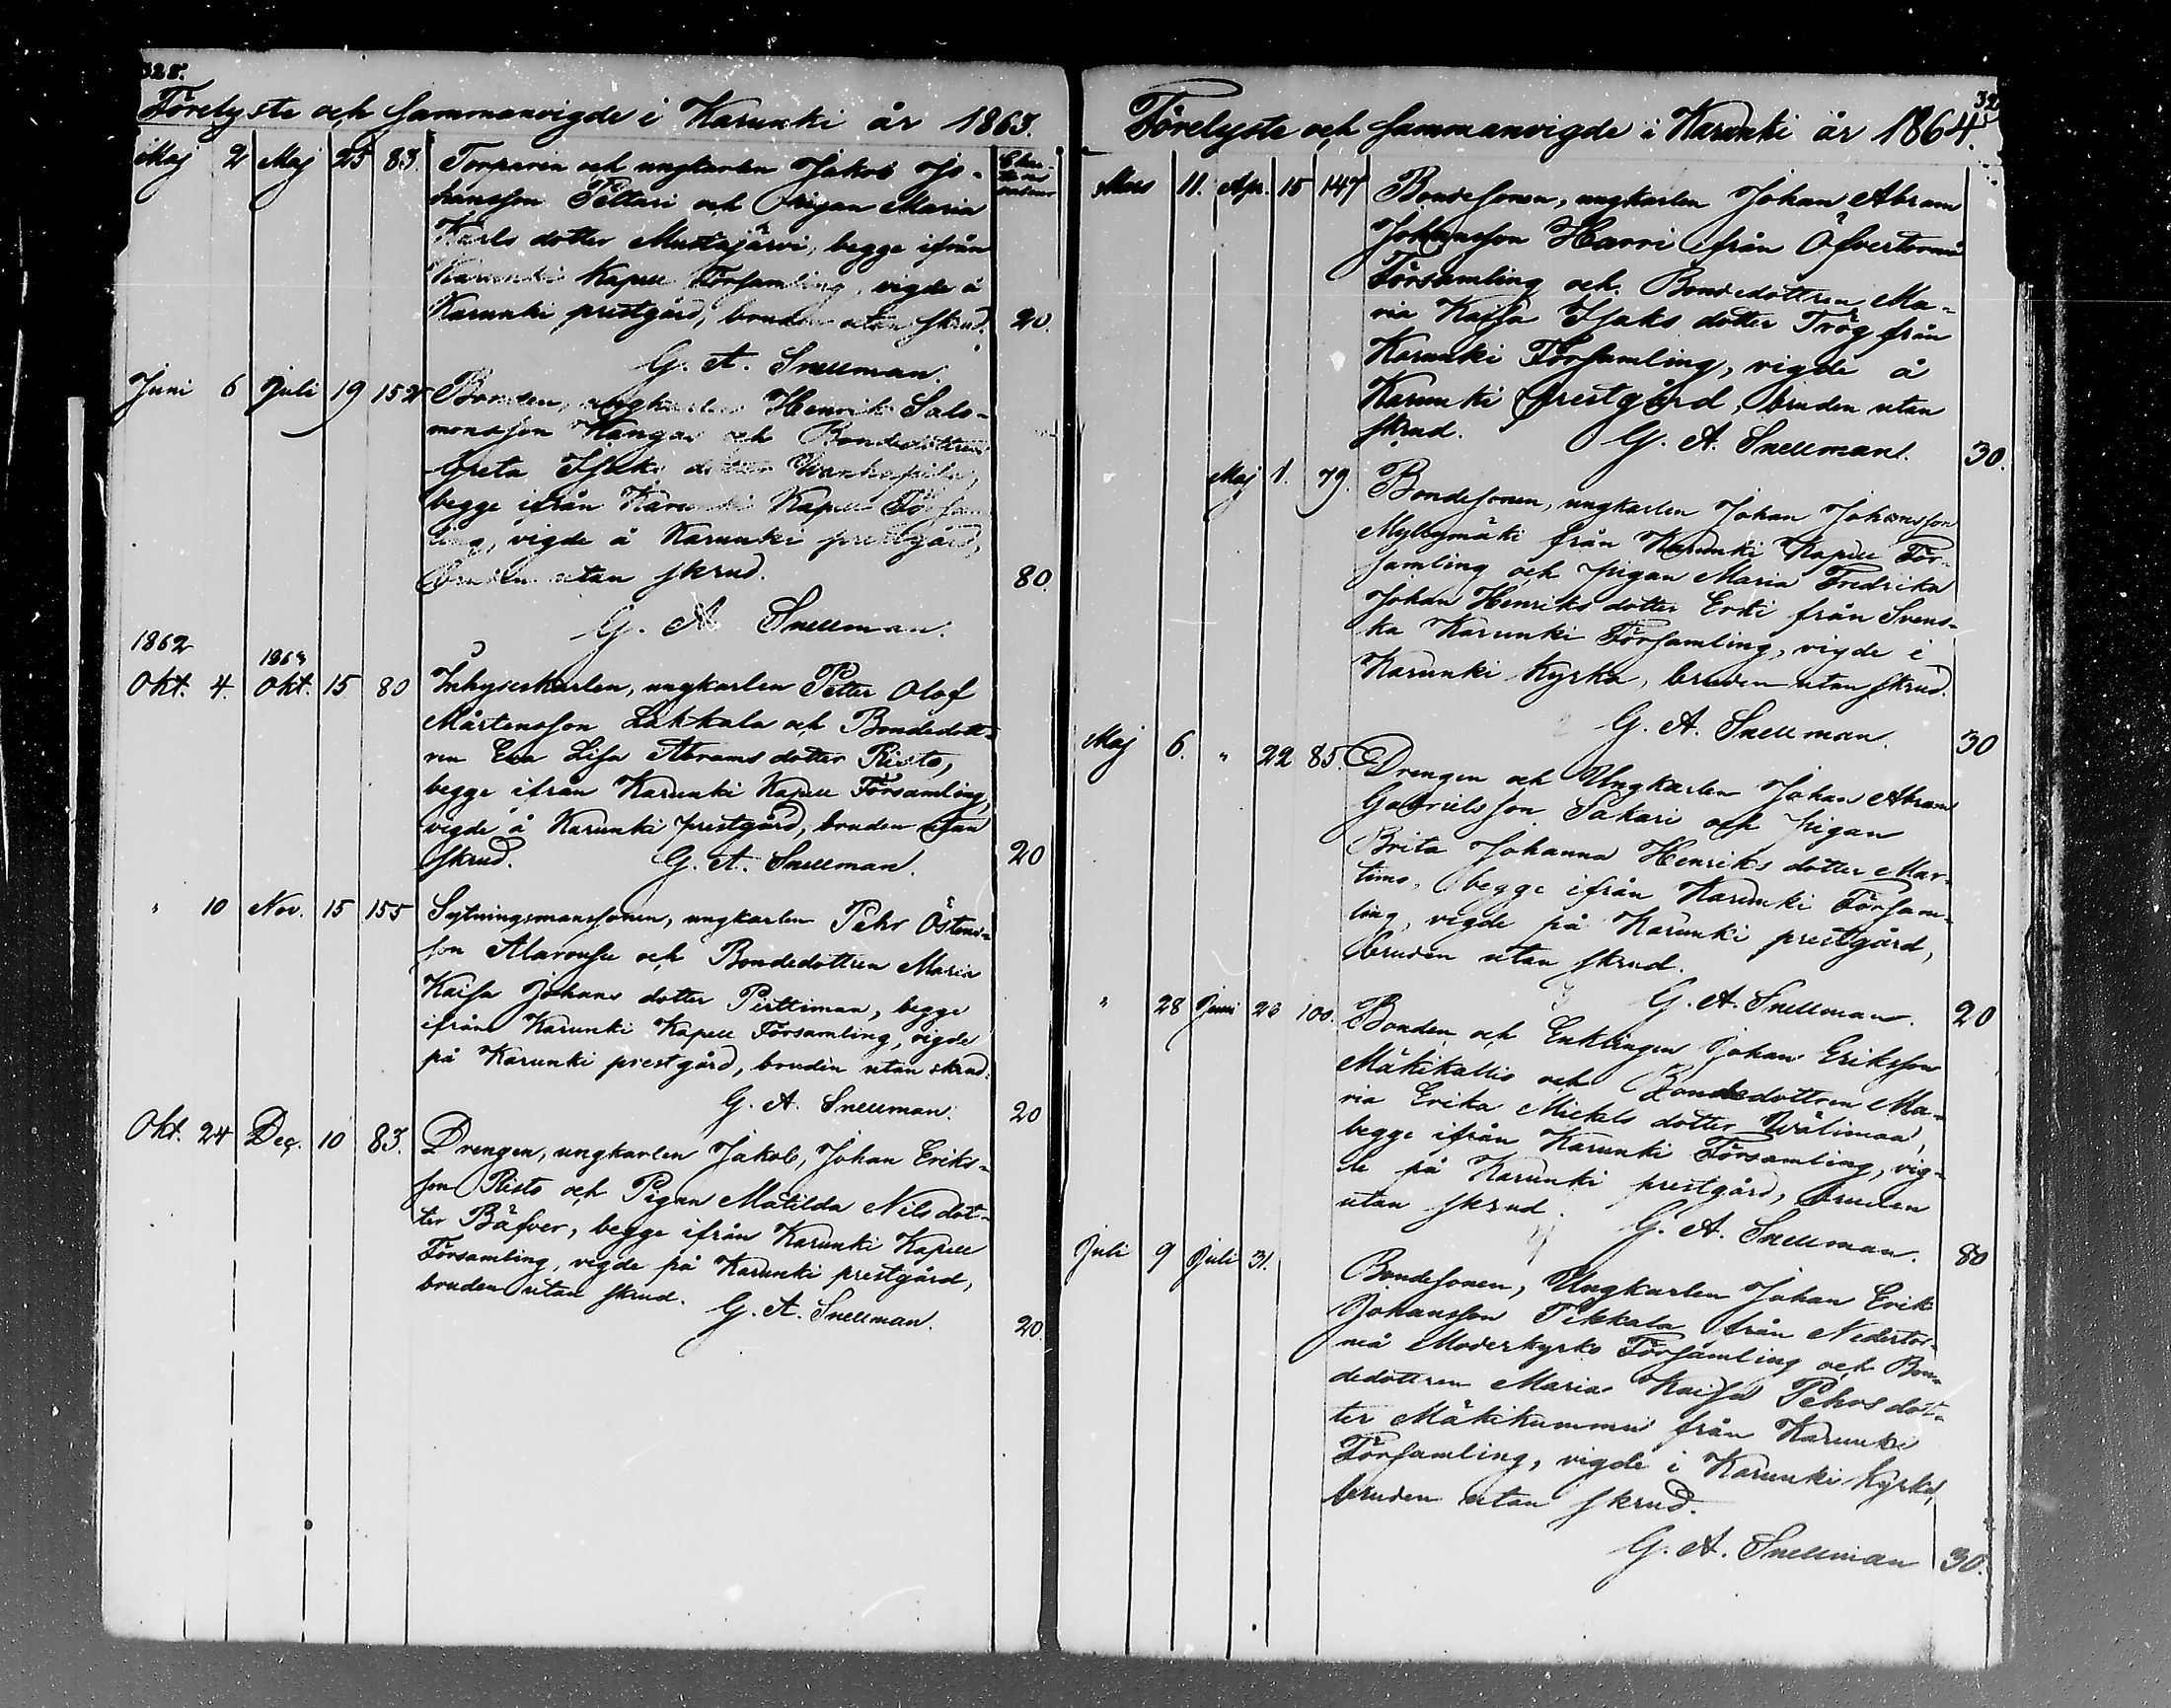 328.
Förelyste och Sammanvigde i Karunki år 1863.
Maj 2 Maj 25 83. Torparen och ungkarlen Jakob Jo-
hansson Pettari och pigan Maria
Karls dotter Mustajärvi, begge ifrån
Karunki Kapell Församling, vigde å
Karunki prestgård, bruden utan skrud. 20.
G. A. Snellman.
Juni 6 Juli 19 152 Bonden, ungkarlen Henrik Salo-
monsson Kangas och Bondedottren
Greta Isaks dotter
begge ifrån Karunki Kapell Försam
ling, vigde å Karunki prestgård,
bruden utan skrud. 80.
G. A. Snellman.
1862 1863
Okt. 4. Okt. 15 80 Inhyseskarlen, ungkarlen Petter Olof
Mårtensson Lakkala och Bondedott-
ren Eva Lisa Abrams dotter Risto,
begge ifrån Karunki Kapell Församling,
vigde å Karunki prestgård, bruden utan
skrud. G. A. Snellman. 20
" 10 Nov. 15 155 Sytningsmanssonen, ungkarlen Pehr Östens-
son Alarousu och Bondedottren Maria
Kaisa Johans dotter Pirttimaa, begge
ifrån Karunki Kapell Församling, vigde
på Karunki prestgård, bruden utan skrud.
G. A. Snellman. 20
Okt. 24 Dec. 10 83. Drengen, ungkarlen Jakob, Johan Eriks-
son Risto och Pigan Matilda Nils dot-
ter Bäfver, begge ifrån Karunki Kapell
Församling, vigde på Karunki prestgård,
bruden utan skrud. G. A. Snellman. 20.
32
Förelyste och Sammanvigde i Karunki år 1864.
Mars 11. Apr. 15 147 Bondesonen, ungkarlen Johan Abram
Johansson Harri från Öfvertorneå
Församling och Bondedottren Ma-
ria Kaisa Isaks dotter Trög från
Karunki Församling, vigde å
Karunki prestgård, bruden utan
skrud. G. A. Snellman. 30.
Maj 1. 79. Bondesonen, ungkarlen Johan Johansson
Myllymäki från Karunki Kapell För-
samling och pigan Maria Fredrika
Johan Henriks dotter Erki från Svens-
ka Karunki Församling, vigde i
Karunki Kyrka, bruden utan skrud.
2 G. A. Snellman. 30
Maj 6. " 22 85. Drengen och Ungkarlen Johan Abram
Gabrielsson Sakari och pigan
Brita Johanna Henriks dotter Mar-
timo, begge ifrån Karunki Försam-
ling, vigde på Karunki prestgård,
bruden utan skrud.
3 G. A. Snellman. 20
" 28 Juni 26 100. Bonden och Enklingen Johan Eriksson
Mäkikallio och Bondedottren Ma-
ria Erika Mickels dotter Wälimaa,
begge ifrån Karunki Församling, vig-
de på Karunki prestgård, bruden
utan skrud.
4 G. A. Snellman. 80
Juli 9 Juli 31. Bondesonen, Ungkarlen Johan Erik
Johansson Tikkala från Nedertor-
neå Moderkyrko Församling och Bon-
dedottren Maria Kaisa Pehrs dot-
ter Mäkikummu från Karunki
Församling, vigde i Karunki Kyrka,
bruden utan skrud.
G. A. Snellman 30.